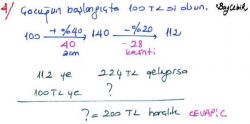 4/ Çocuğun başlangıçta 100 TL si olsun.
100 + %40 → 140 - %20 → 112
40 zam
-28
112 ye 224 TL geliyorsa
100 TL ye ?
? = 200 TL harçlık CEVAP: C